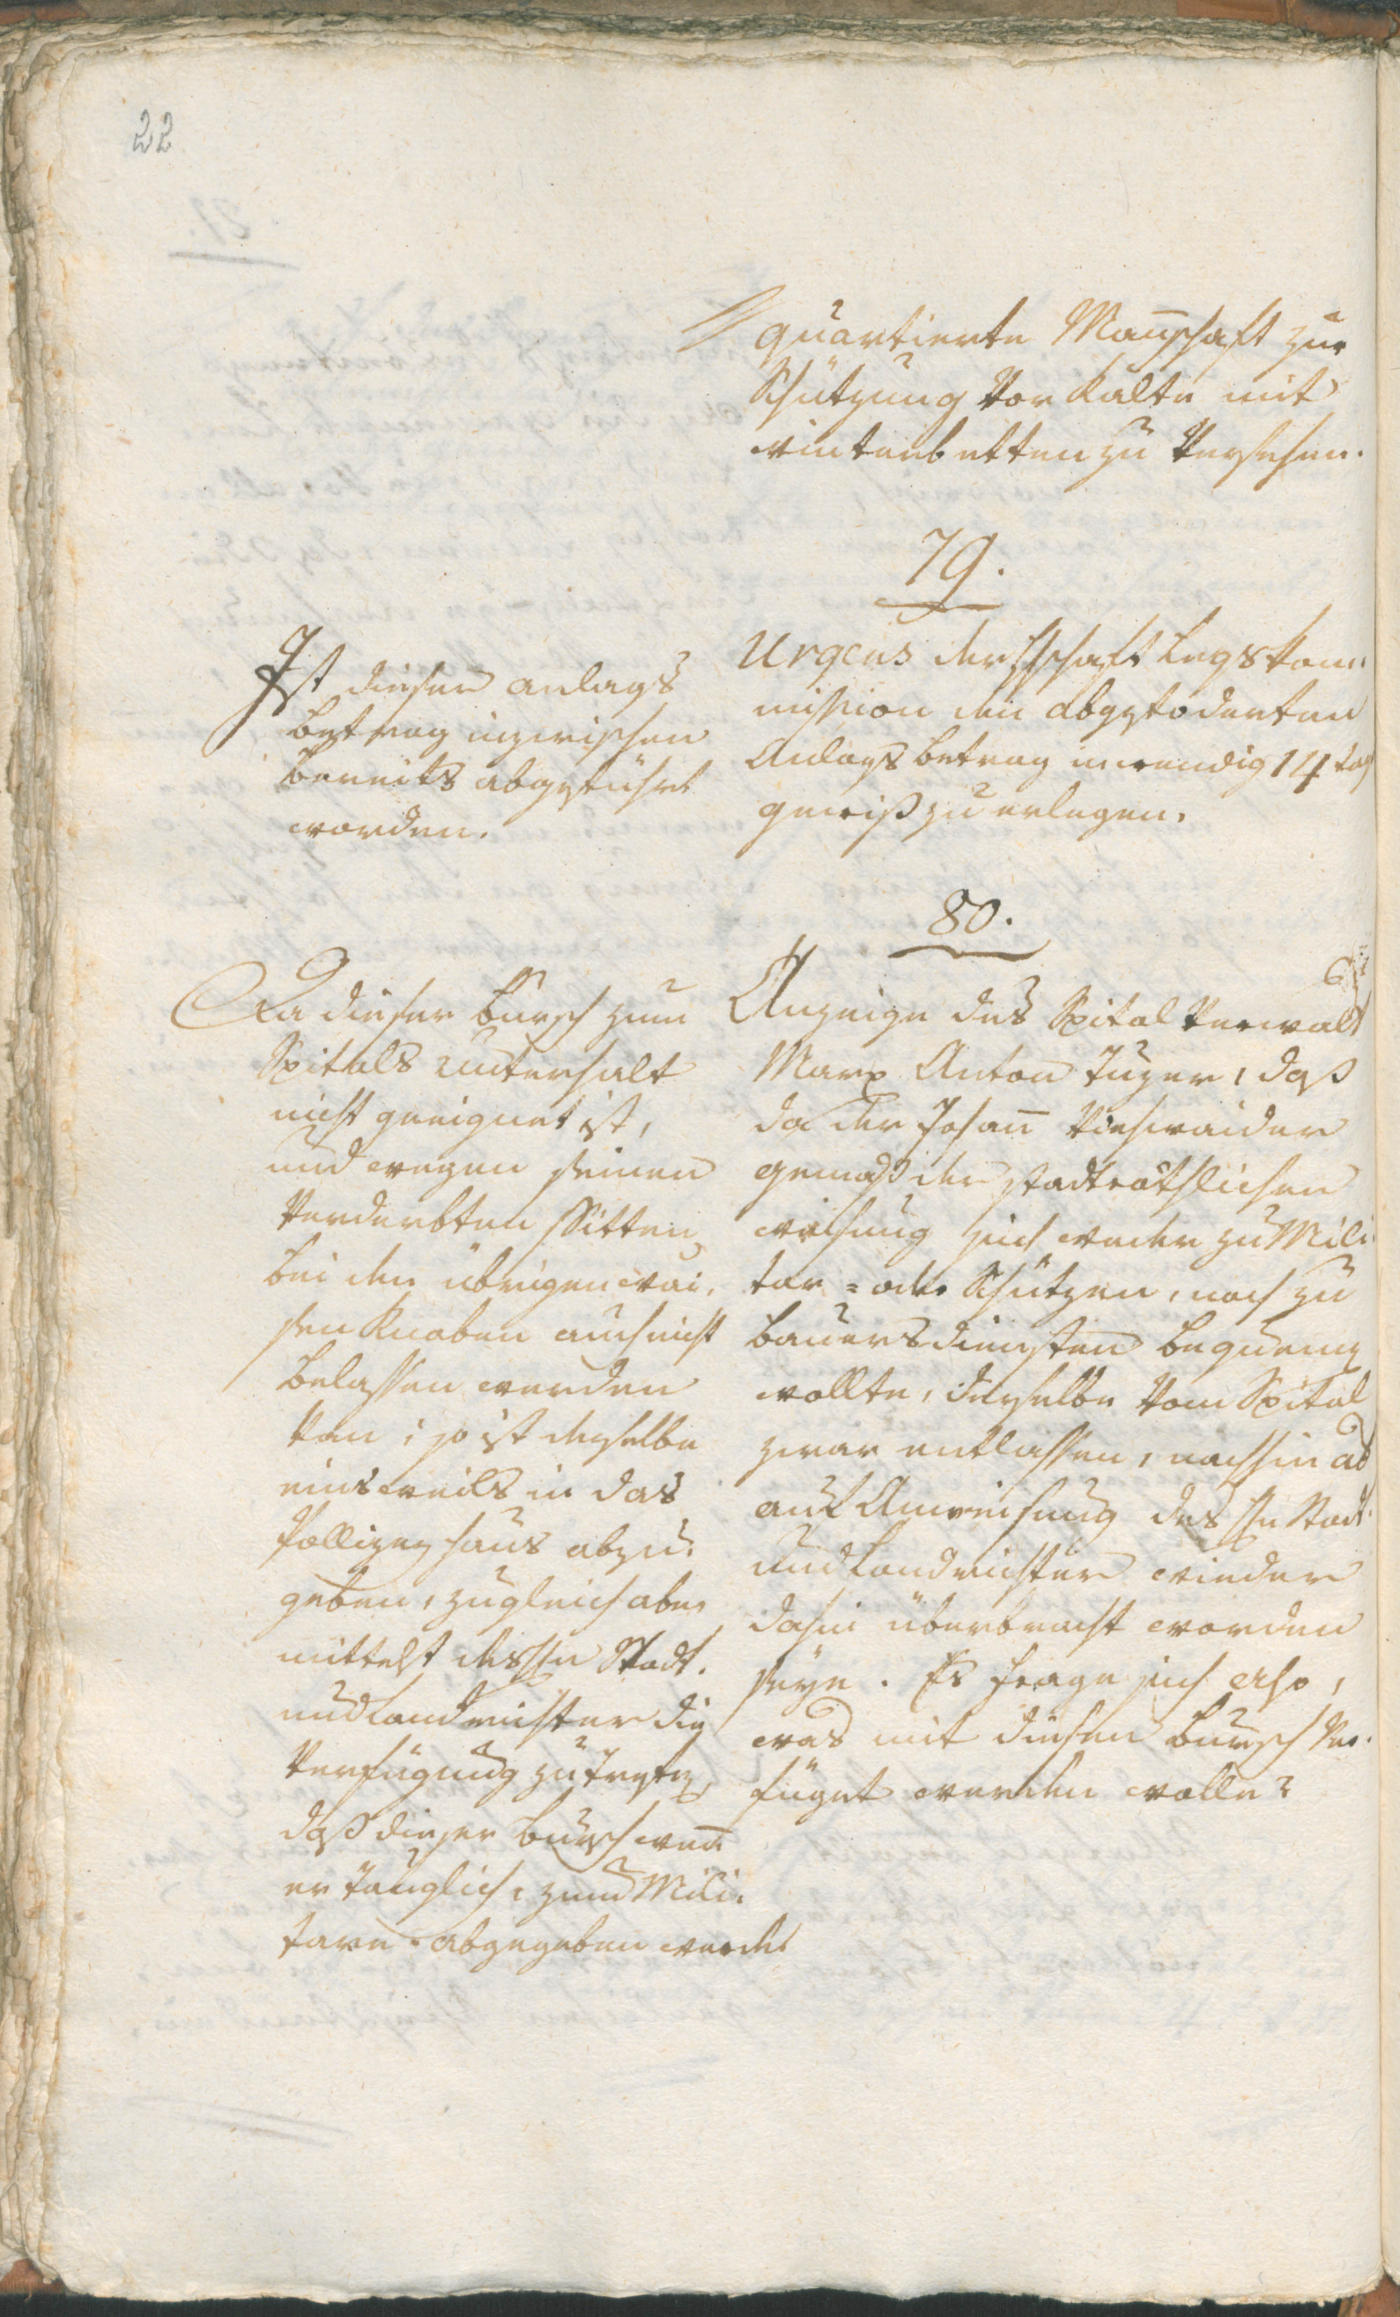 22
quartierte Mañschaft zur
Schützung vor Kälte mit
winterbetten zu versehen.
79.
Urgens der
mission den abgeforderten
Anlags betrag inwendig 14 tag
gewiß zu erlegen.
Ist dieser anlags
betrag inzwischen
bereits abgeführt
worden.
80.
Anzeige des Spital Verwalt
Marx Anton Tuzer, daß
da der Johañ
gemäß der stadträthlichen
weisung sich weder zu Mili
tar = oder Schützen, noch zu
bauersdiensten bequemen
wollte, derselbe vom Spital
zwar entlassen, nachhin ab
auf Anweisung des Hn Stadt
und Landrichter wieder
dahin überbracht worden
seye. Es frage sich also,
was mit diesen Bursch ver
füget werden wolle?
Da dieser Bursch zum
Spitals unterhalt
nicht geeignet ist,
und wegen seinen
verderbten Sitten
bei den übrigen wai,
sen Knaben auch nicht
belassen werden
kan; so ist derselbe
einsweils in das
Pollizey haus abzu,
geben, zugleich aber
mittelst des Hn Stadt.
und Landrichter die
Verfügung zu treffen,
daß dieser Bursch weñ
er tauglich, zum Mili,
tare abgegeben werde.